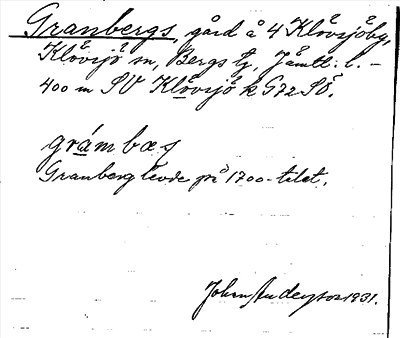 Granbergs, gård å 4 Klövsjöby,
Klövsjö sn, Bergs tg, Jämtl. l. –
400 m SV Klövsjö k G72 SÖ.
grámbæṣ
Granberg levde på 1700-talet.
Johan Anderson 1931.